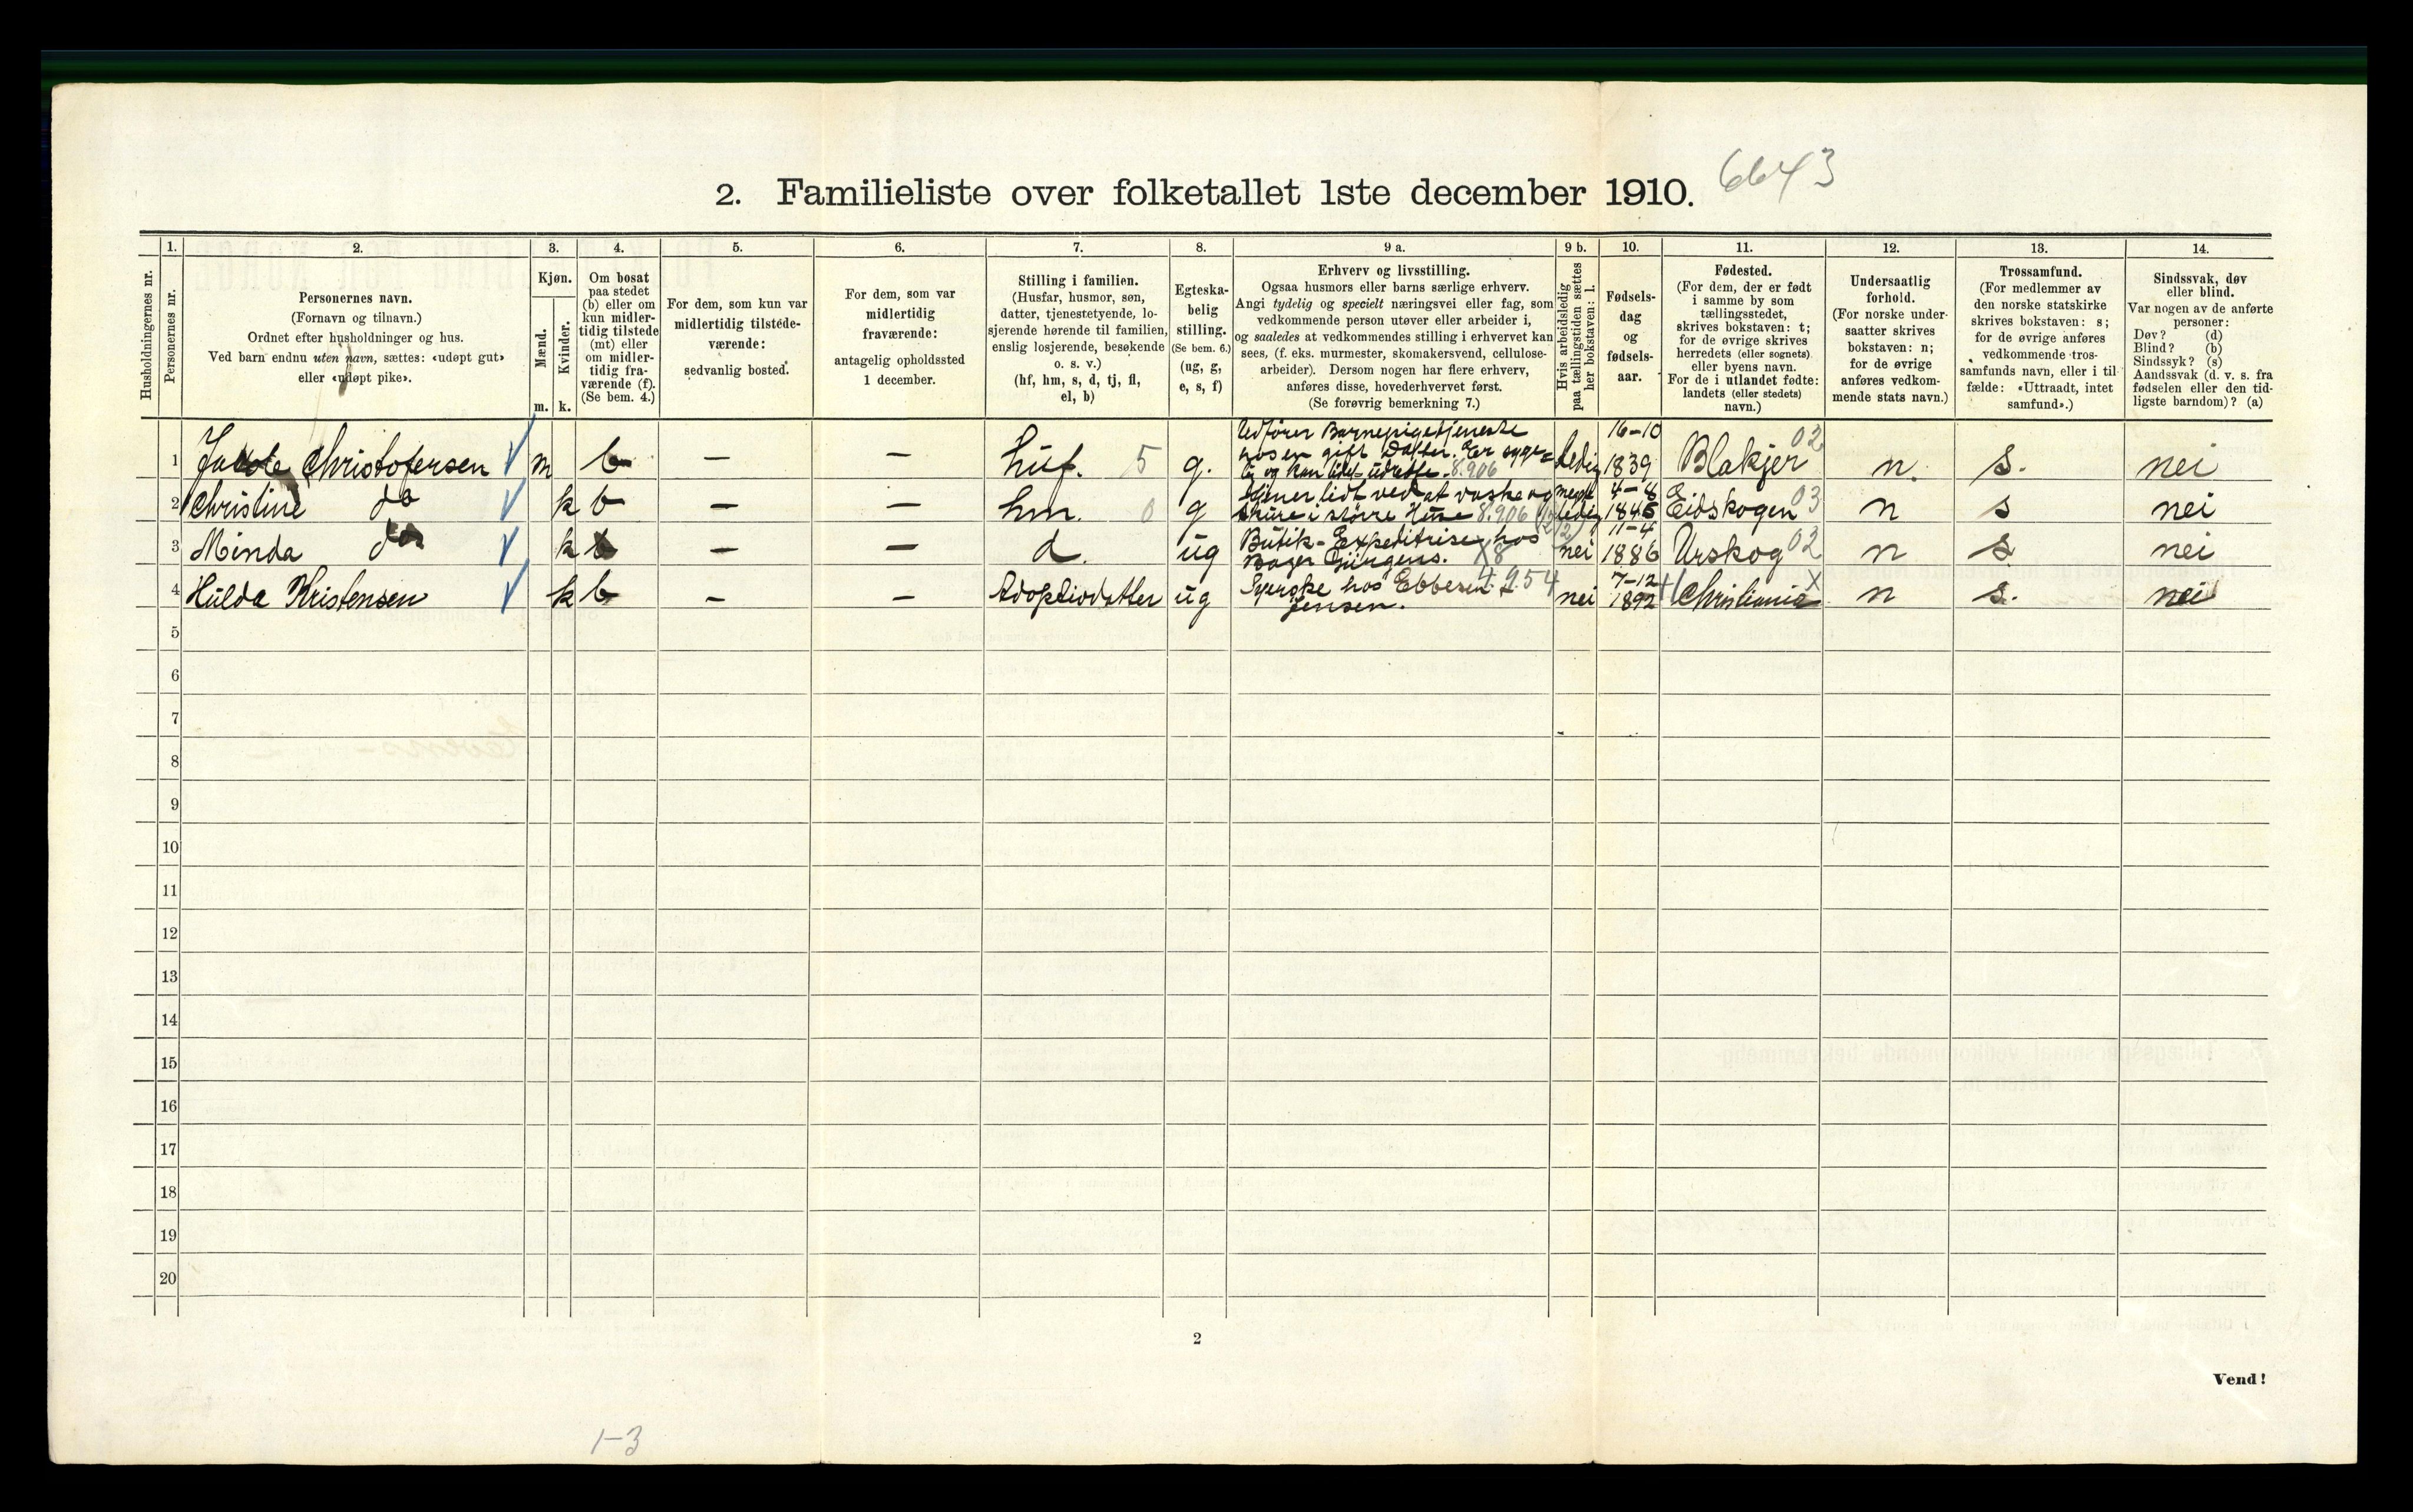 2. Familieliste over folketallet 1ste december 1910.
6643
Husholdningernes nr.
1.
Personernes nr.
2.
Personernes navn.
(Fornavn og tilnavn.)
Ordnet efter husholdninger og hus.
Ved barn endnu uten navn, sættes: «udøpt gut»
eller «udøpt pike».
3.
Kjøn.
Mænd.
Kvinder.
m. k.
4.
Om bosat
paa stedet
(b) eller om
kun midler-
tidig tilstede
(mt) eller
om midler-
tidig fra-
værende (f).
(Se bem. 4.)
5.
For dem, som kun var
midlertidig tilstede-
værende:
sedvanlig bosted.
6.
For dem, som var
midlertidig
fraværende:
antagelig opholdssted
1 december.
7.
Stilling i familien.
(Husfar, husmor, søn,
datter, tjenestetyende, lo-
sjerende hørende til familien,
enslig losjerende, besøkende
o. s. v.)
(hf, hm, s, d, tj, fl,
el, b)
8.
Egteska-
belig
stilling.
(Se bem. 6.)
(ug, g,
e, s, f)
9 a.
Erhverv og livsstilling.
Ogsaa husmors eller barns særlige erhverv.
Angi tydelig og specielt næringsvei eller fag, som
vedkommende person utøver eller arbeider i,
og saaledes at vedkommendes stilling i erhvervet kan
sees, (f. eks. murmester, skomakersvend, cellulose-
arbeider). Dersom nogen har flere erhverv,
anføres disse, hovederhvervet først.
(Se forøvrig bemerkning 7.)
9 b.
Hvis arbeidsledig
paa tællingstiden sættes
her bokstaven: l.
10.
Fødsels-
dag
og
fødsels-
aar.
11.
Fødested.
(For dem, der er født
i samme by som
tællingsstedet,
skrives bokstaven: t;
for de øvrige skrives
herredets (eller sognets)
eller byens navn.
For de i utlandet fødte:
landets (eller stedets)
navn.)
12.
Undersaatlig
forhold.
(For norske under-
saatter skrives
bokstaven: n;
for de øvrige
anføres vedkom-
mende stats navn.)
13.
Trossamfund.
(For medlemmer av
den norske statskirke
skrives bokstaven: s;
for de øvrige anføres
vedkommende tros-
samfunds navn, eller i til-
fælde: «Uttraadt, intet
samfund».)
14.
Sindssvak, døv
eller blind.
Var nogen av de anførte
personer:
Døv? (d)
Blind? (b)
Sindssyk? (s)
Aandssvak (d. v. s. fra
fødselen eller den tid-
ligste barndom)? (a)
1 Christofersen m b — — huf. 5 g. Udfører Barnepigetjeneste
hos en gift Datter. Er syge-
lig og kan lidet udrette. 8.906 Ledig 16-10 1839 Blakjer 02 n. s. nei
2 Christine do k b — — hm. 0 g Tjener lidt ved at vaske og
skure i større Huse 8.906 ledig 4-8 1846 Eidskogen 03 n s nei
3 Minda do k b — — d. ug Butik-Expeditrise hos
Bager Jürgens. X8 nei 11-4 1886 Urskog 02 n s. nei
4 Hulda Kristensen k b — — Adoptivdatter ug Syerske hos Ebbesen 4.254
Jensen. nei 7-12 1892 Christiania X n s. nei
5
6
7
8
9
10
11
12
13
14
15
16
17
18
19
20
2
Vend!
1-3